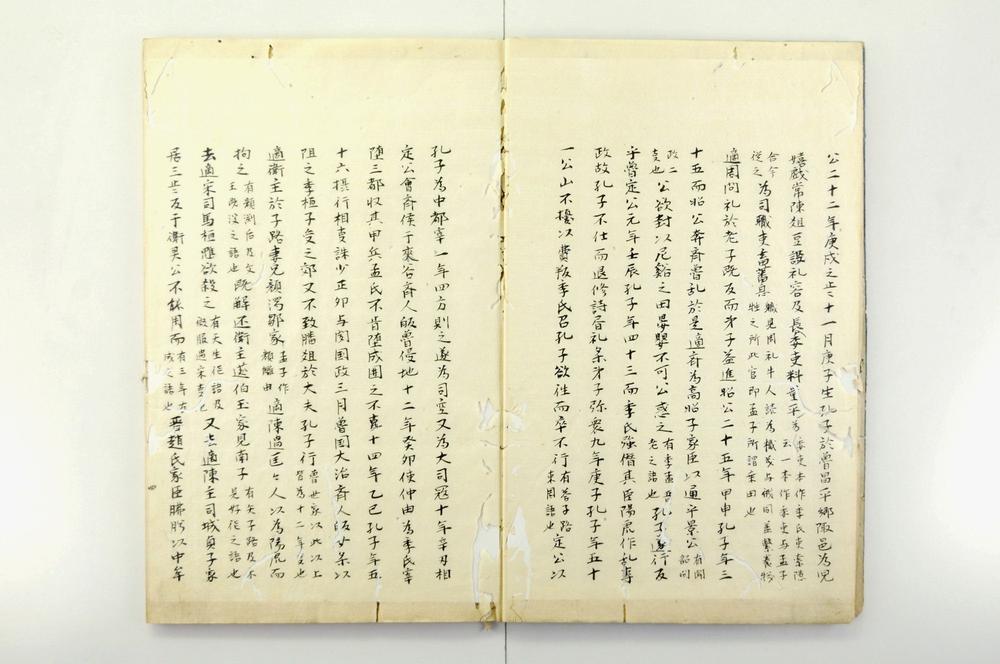 公二十二年庚戌之歲十一月庚子生孔子於魯昌平郷陬邑為児
嬉戯常陳俎豆設礼容及長委吏料量平 委吏本作季氏吏索隠云一本作委吏与孟子
合今従之 為司職吏畜蕃息 職見周礼牛人読為樴義与杙同盖繋養犠牲之所此官即孟子所謂乗田也
適周問礼於老子既反而弟子益進昭公二十五年甲申孔子年三
十五而昭公奔斉魯乱於是適斉為高昭子家臣以通乎景公 有聞韶問
政二事也 公欲封以尼谿之田晏嬰不可公惑之 有季孟吾老之語也 孔子遂行反
乎魯定公元年壬辰孔子年四十三而季氏強僭其臣陽虎作乱専
政故孔子不仕而退修詩書礼楽弟子弥衆九年庚子孔子年五十
一公山不擾以費叛季氏召孔子欲往而卒不行 有答子路東周語也 定公以
孔子為中都宰一年四方則之遂為司空又為大司冦十年辛丑相
定公會斉侯于夾谷斉人皈魯侵地十二年癸卯使仲由為季氏宰
堕三都収其甲兵孟氏不肯堕成囲之不克十四年乙巳孔子年五
十六摂行相事誅少正卯与聞国政三月魯国大治斉人皈女楽以
阻之季桓子受之郊又不致膰俎於大夫孔子行 魯世家以此以上皆為十二年事也
適衛主於子路妻兄顔濁鄒家 孟子作顔讎由 適陳過匡々人以為陽虎而
拘之 有顔渕后及文王既没之語也 既解还衛主蘧伯玉家見南子 有矢子路及未見好徳之語也
去適宋司馬桓魋欲殺之 有天生徳語及微服過宋事也 又去適陳主司城貞子家
居三歲反于衛灵公不能用而 有三年有成之語也 晋趙氏家臣胇肸以中牟